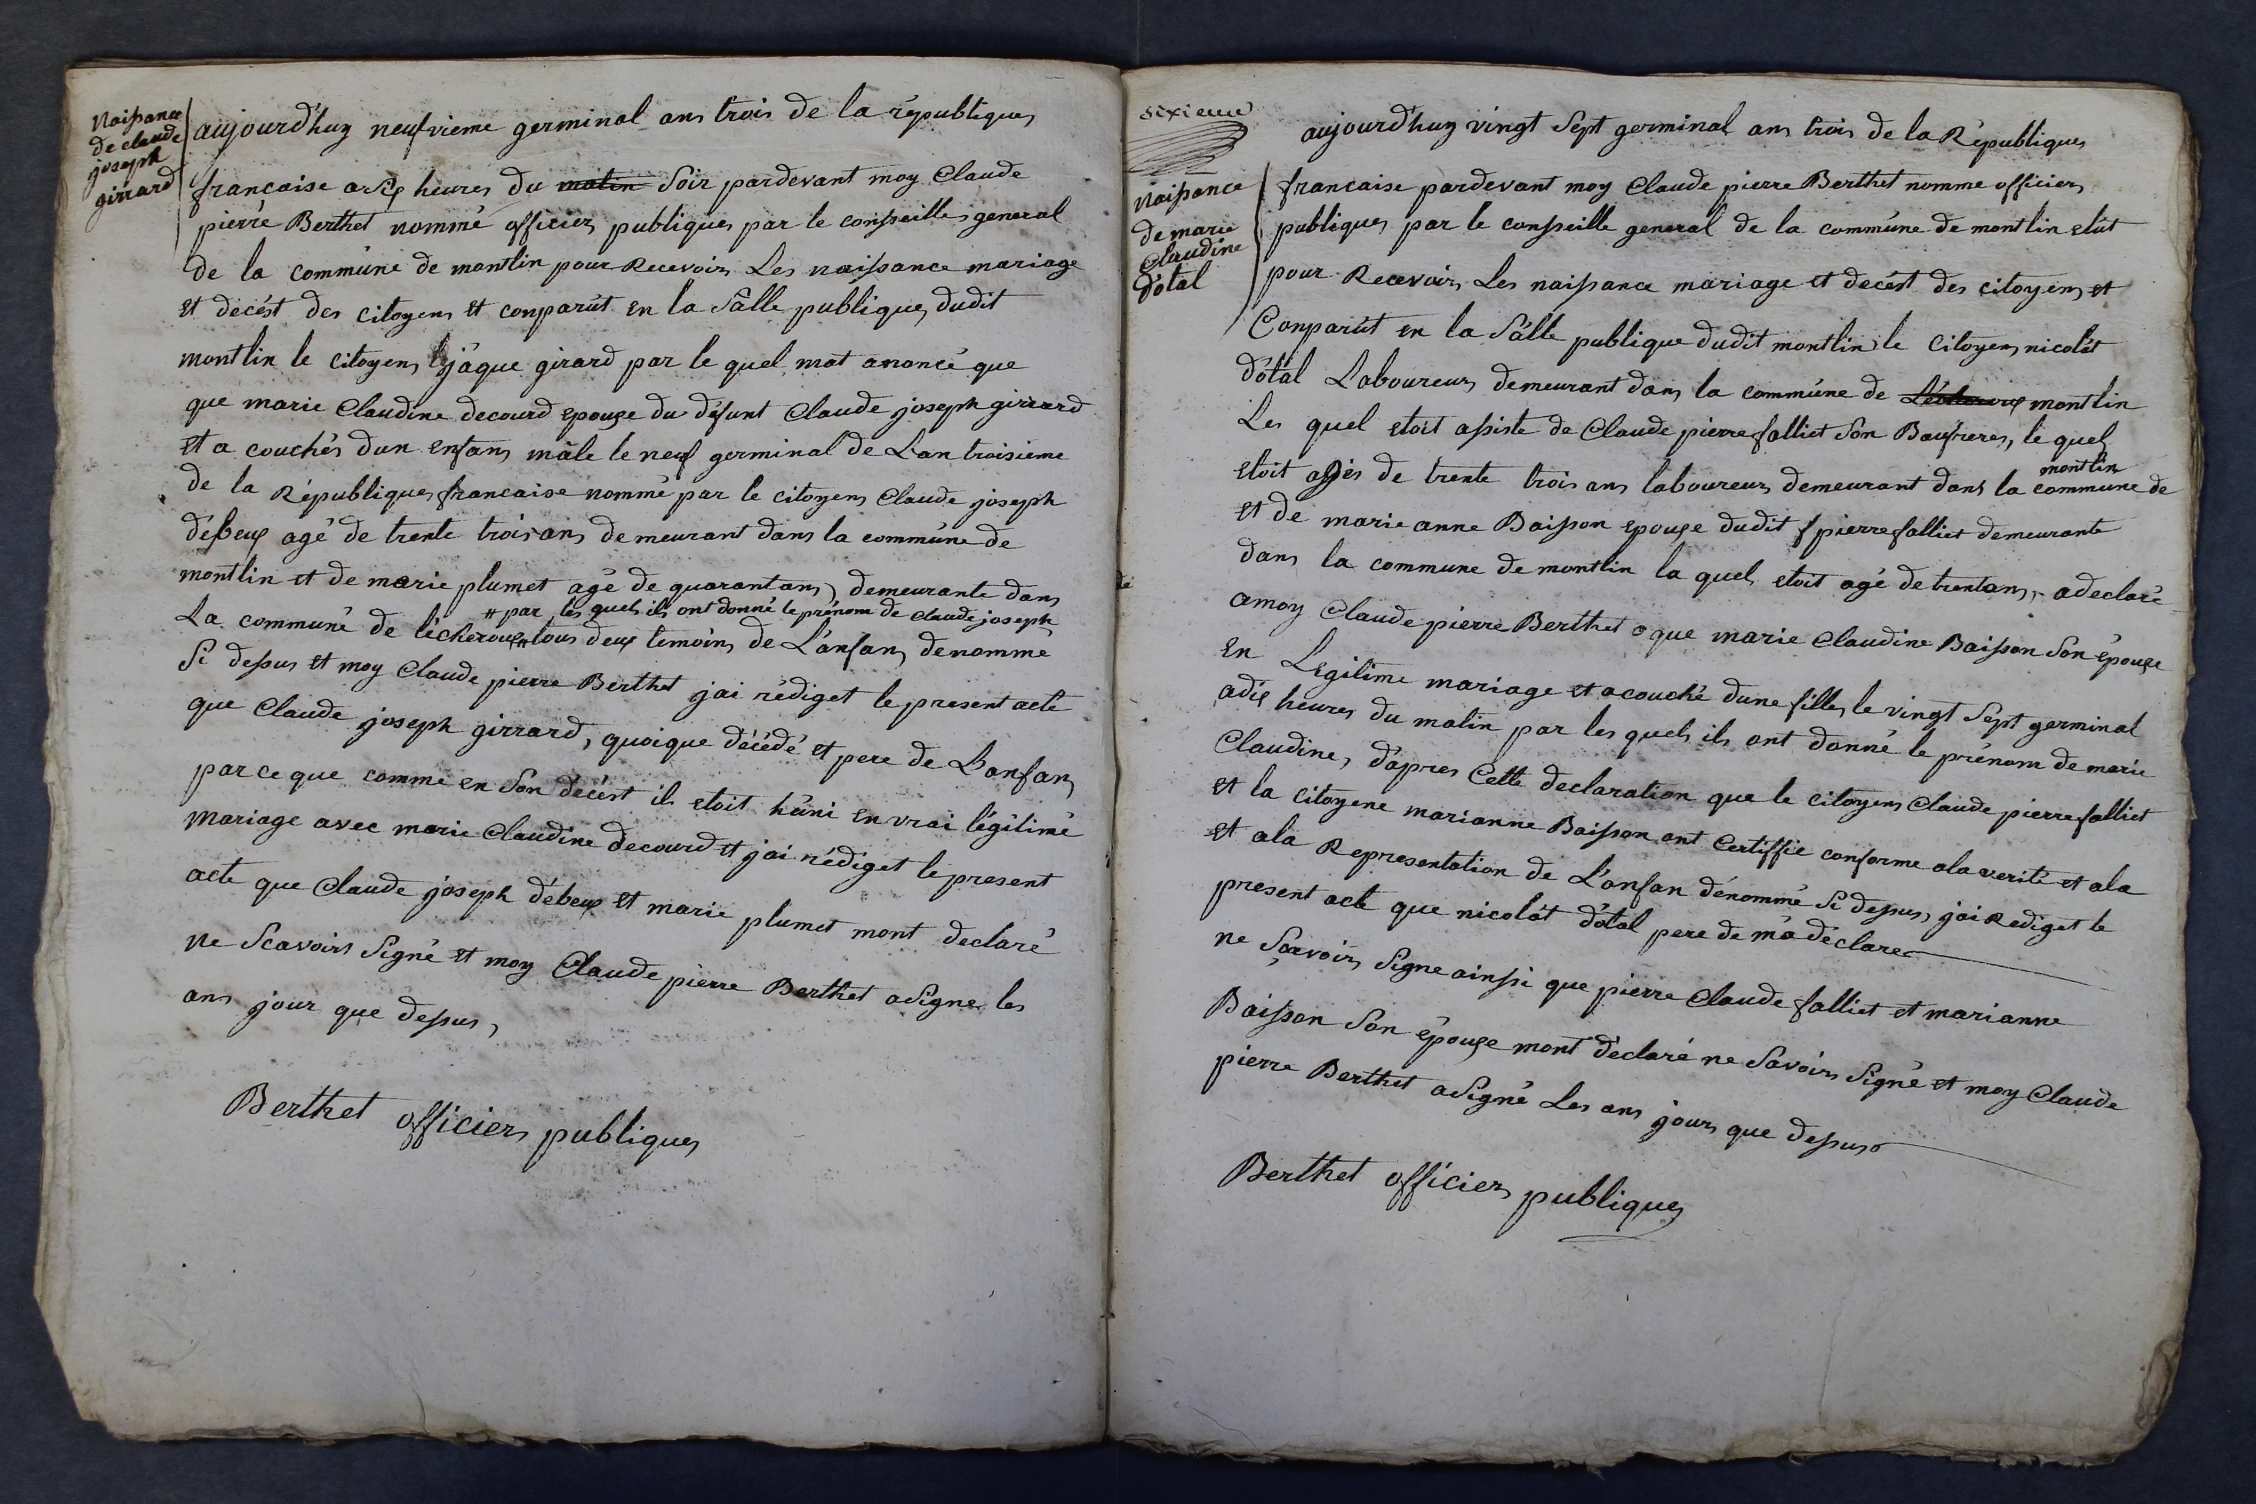 Naissance
de claude
joseph
girrard
aujourd'huy neufvieme germinal ans trois de la républiques
francaise a six heures du matin Soir pardevant moy Claude
pierre Berthet nommé officiers publiques par le conseilles general
de la commúne de montlin pour Recevoirs Les naissance mariage
et décést des citoyens et conparút en la Sâlle publiques dudit
montlin le citoyens jâque girard par le quel mat anoncé que
que marie Claudine decourd epouse du défunt Claude joseph girrard
et a couchés dun enfans mâle le neuf germinal de Lan troisieme
de la Républiques francaise nommé par le citoyens Claude joseph
débeux agé de trente trois ans demeurant dans la commúne de
montlin et de marie plumet agé de quarantans, demeurante dans
# par les quels ils ont donné le prénom de claude joseph
La communé de lécheroux # tous deux temoins de L'anfans denommé
Si dessus et moy Claude pierre Berthet jai rédiget le present acte
que Claude joseph girrard, quoique décédé et pere de Lanfans
parce que comme en Son décést ils etoit húni en vrai légitimé
mariage avec marie Claudine decourd et jai rédiget le present
acte que Claude joseph débeux et marie plumet mont declaré
ne Scavoirs Signé et moy Claude pierre Berthet a Signe les
ans jour que dessus,
Berthet officiers publiques
Sixieme
Naissance
de marie
Claudine
dotal
aujourd'huy vingt Sept germinal ans trois de la Républiques
francaise pardevant moy Claude pierre Berthet nomme officiers
publiques par le conseille general de la commúne de montlin elút
pour Recevoirs Les naissance mariage et decést des citoyens et
Conparút en la Sâlle publique dudit montlin le Citoyens nicolât
dótal Laboureurs demeurant dans la commúne de Lécheroux montlin
Les quel etoit assiste de Claude pierre falliet Son Baufreres, le quel
montlin
etoit agés de trente trois ans laboureurs demeurant dans la commune de
et de marie anne Baisson epouse dudit f pierre falliet demeurante
dans la commune de montlin la quels etoit agé de trentans, a declaré
a moy Claude pierre Berthet que marie Claudine Baisson Son épouse
en Legitime mariage et a couché dune filles le vingt Sépt germinal
a dix heures du matin par les quels ils ont donné le prénom de marie
Claudine, d'apres Cette declaration que le citoyens Claude pierre falliet
et la citoyene marianne Baisson ont Certiffie conforme a la verité et a la
et a la Representation de L'anfan dénommé Si dessus, jai Rediget le
present acte que nicolât dótal pere de má déclarer
ne Sçavoirs Signe ainsi que pierre Claude falliet et marianne
Baisson Son épouse mont déclaré ne Savoirs Signé et moy Claude
pierre Berthet a Signé Les ans jours que dessus
Berthet officiers publiques